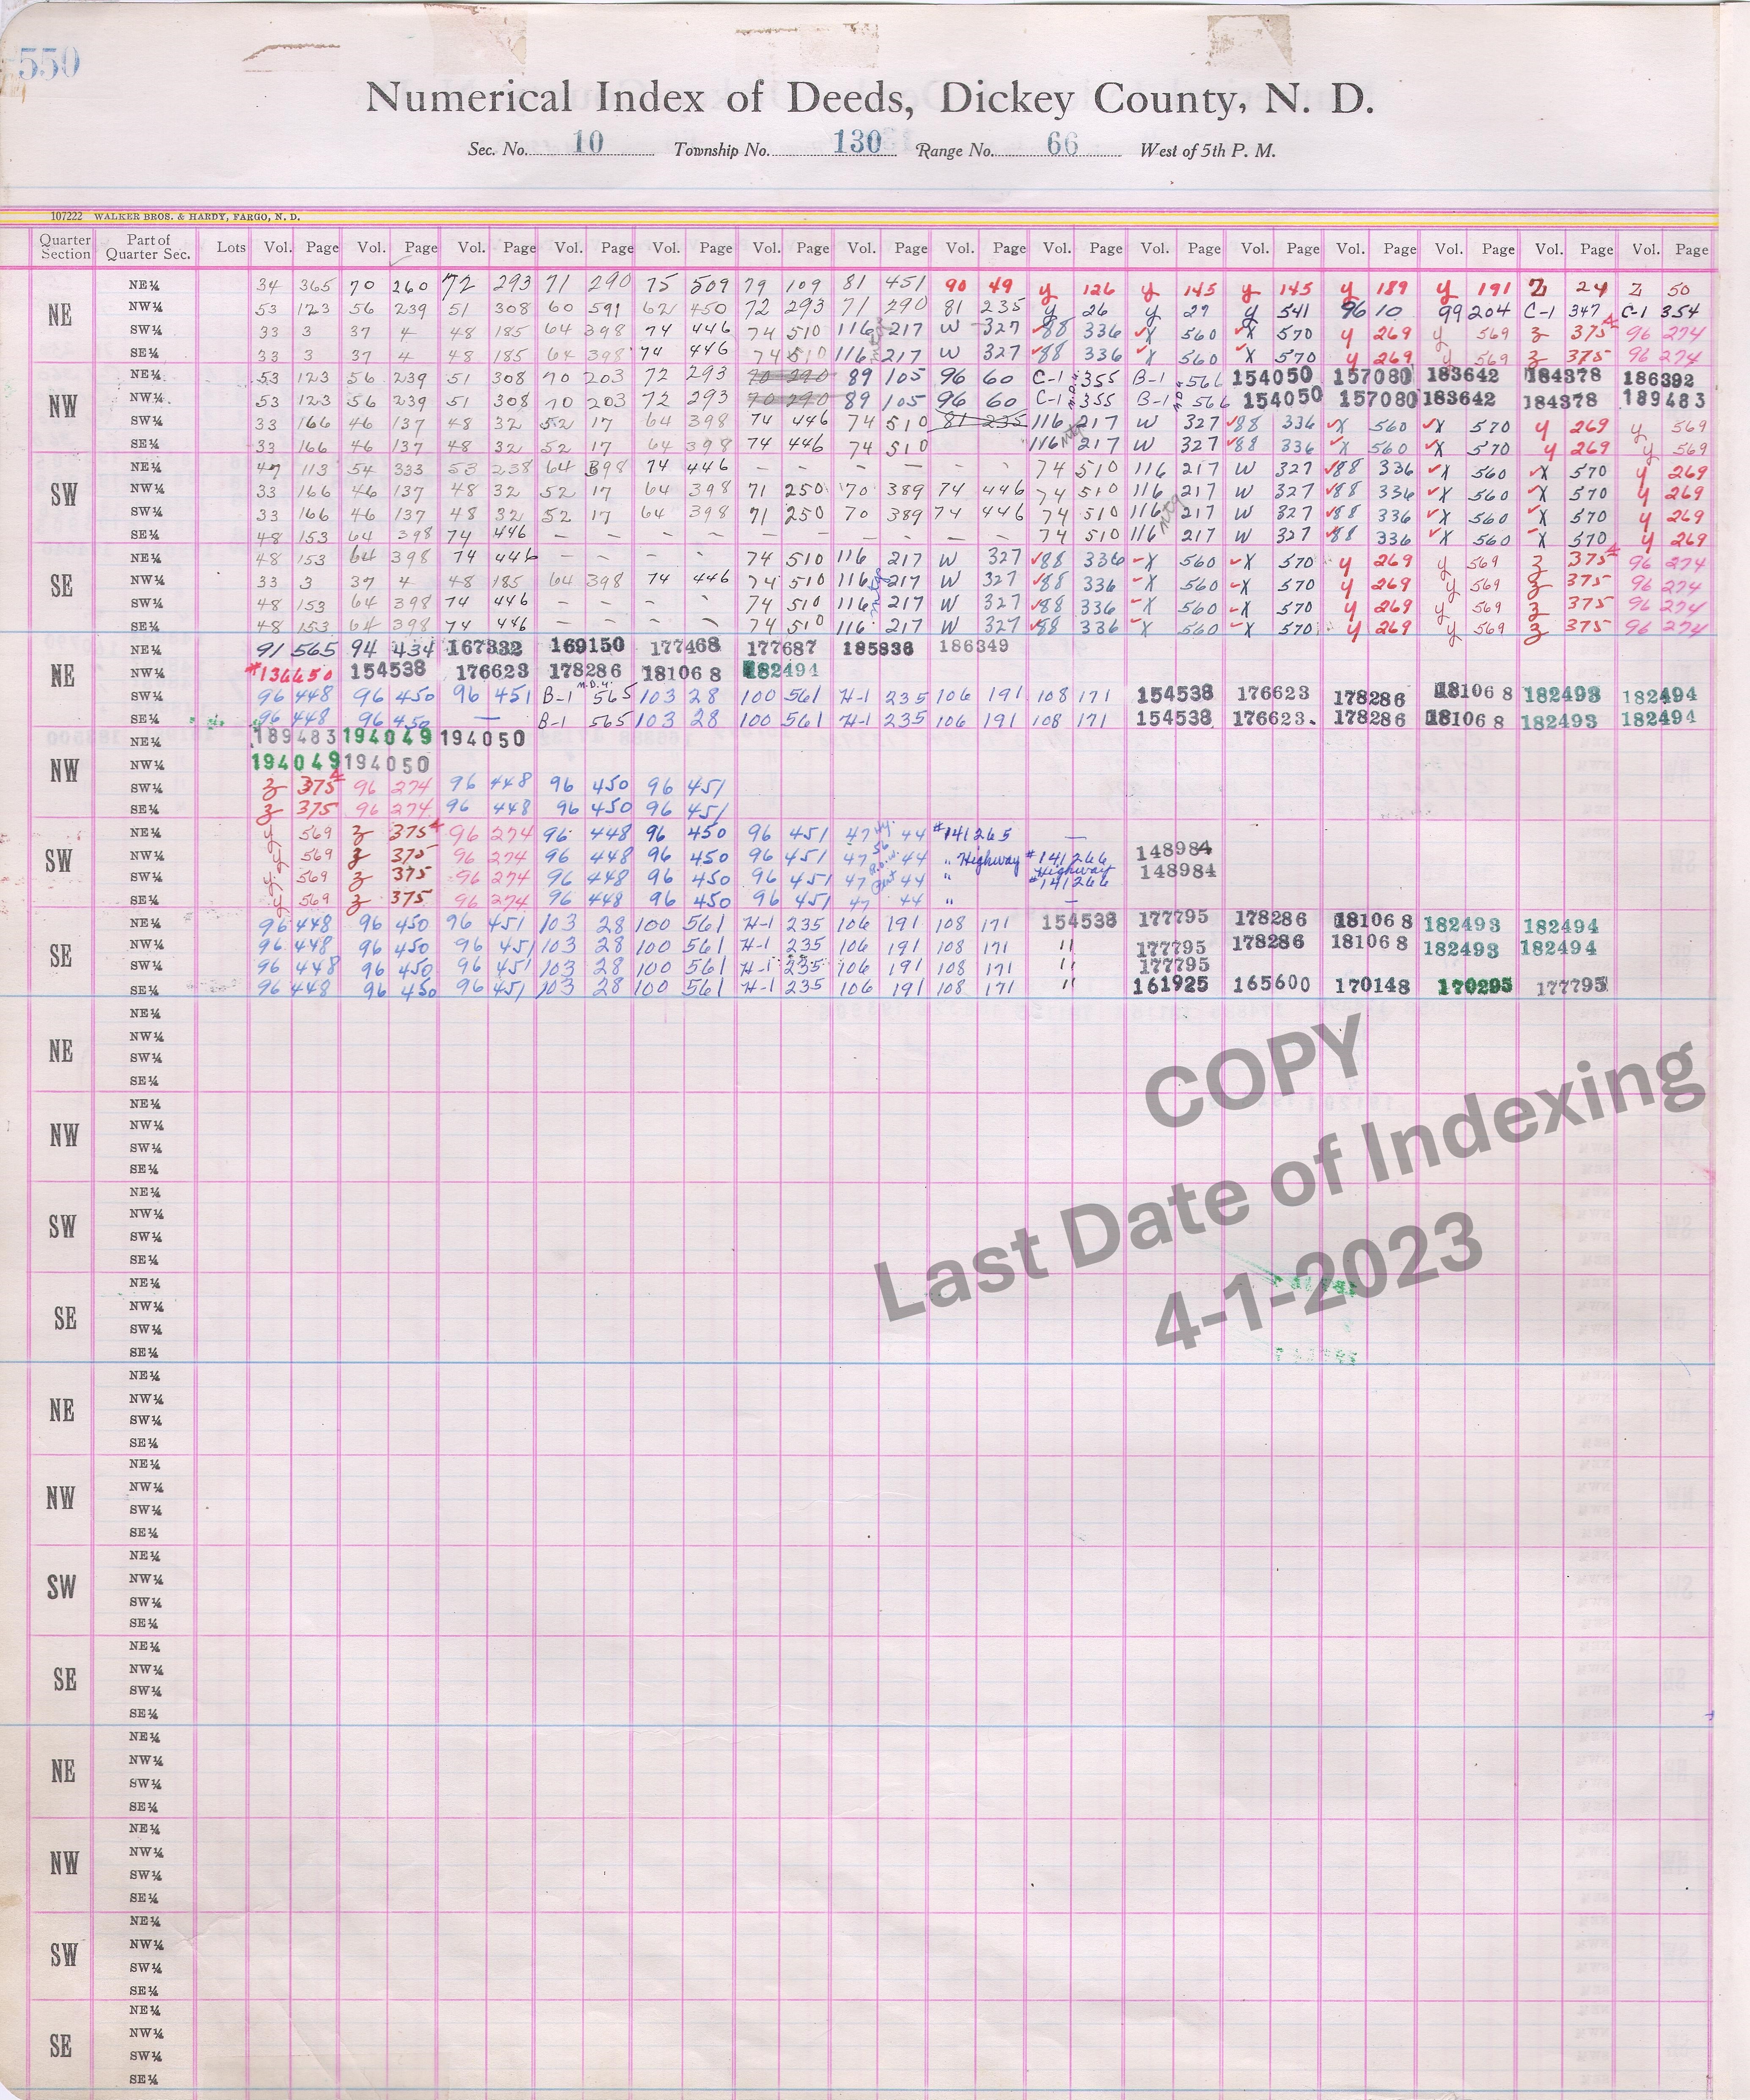 550
Numerical Index of Deeds, Dickey County, N. D.
Sec. No. 10 Township No. 130 Range No. 66 West of 5th P. M.
107222 WALKER BROS. & HARDY, FARGO, N. D.
Quarter Section Part of Quarter Sec. Lots Vol. Page Vol. Page Vol. Page Vol. Page Vol. Page Vol. Page Vol. Page Vol. Page Vol. Page Vol. Page Vol. Page Vol. Page Vol. Page Vol. Page Vol. Page
NE NE¼ 34 365 70 260 72 293 71 290 75 509 79 109 81 451 90 49 y 126 y 145 y 145 y 189 y 191 Z 24 Z 50
NW¼ 53 123 56 239 51 308 60 591 62 450 72 293 71 290 81 235 y 26 y 27 y 541 96 10 99 204 C-1 347 C-1 354
SW¼ 33 3 37 4 48 185 64 398 74 446 74 510 116 217 W 327 88 336 X 560 X 570 y 269 y 569 z 375 96 274
SE¼ 33 3 37 4 48 185 64 398 74 446 74 510 116 217 W 327 88 336 X 560 X 570 y 269 y 569 z 375 96 274
NW NE¼ 53 123 56 239 51 308 70 203 72 293 70 290 89 105 96 60 C-1 355 B-1 566 154050 157080 183642 184378 186392
NW¼ 53 123 56 239 51 308 70 203 72 293 70 290 89 105 96 60 C-1 355 B-1 566 154050 157080 183642 184378 189483
SW¼ 33 166 46 137 48 32 52 17 64 398 74 446 74 510 81 235 116 217 W 327 88 336 X 560 X 570 y 269 y 569
SE¼ 33 166 46 137 48 32 52 17 64 398 74 446 74 510 116 217 W 327 88 336 X 560 X 570 y 269 y 569
SW NE¼ 47 113 54 333 53 238 64 398 74 446 – – – – – – 74 510 116 217 W 327 88 336 X 560 X 570 y 269
NW¼ 33 166 46 137 48 32 52 17 64 398 71 250 70 389 74 446 74 510 116 217 W 327 88 336 X 560 X 570 y 269
SW¼ 33 166 46 137 48 32 52 17 64 398 71 250 70 389 74 446 74 510 116 217 W 327 88 336 X 560 X 570 y 269
SE¼ 48 153 64 398 74 446 – – – – – – – – – – 74 510 116 217 W 327 88 336 X 560 X 570 y 269
SE NE¼ 48 153 64 398 74 446 – – – – 74 510 116 217 W 327 88 336 X 560 X 570 y 269 y 569 z 375 96 274
NW¼ 33 3 37 4 48 185 64 398 74 446 74 510 116 217 W 327 88 336 X 560 X 570 y 269 y 569 z 375 96 274
SW¼ 48 153 64 398 74 446 – – – – 74 510 116 217 W 327 88 336 X 560 X 570 y 269 y 569 z 375 96 274
SE¼ 48 153 64 398 74 446 – – – – 74 510 116 217 W 327 88 336 X 560 X 570 y 269 y 569 z 375 96 274
NE NE¼ 91 565 94 434 167332 169150 177468 177687 185836 186349
NW¼ #136650 154538 176623 178286 181068 182494
SW¼ 96 448 96 450 96 451 B-1 565 103 28 100 561 H-1 235 106 191 108 171 154538 176623 178286 181068 182493 182494
SE¼ 96 448 96 450 — B-1 565 103 28 100 561 H-1 235 106 191 108 171 154538 176623 178286 181068 182493 182494
NW NE¼ 189483 194049 194050
NW¼ 194049 194050
SW¼ z 375 96 274 96 448 96 450 96 451
SE¼ z 375 96 274 96 448 96 450 96 451
SW NE¼ y 569 z 375 96 274 96 448 96 450 96 451 47 44 #141265 —
NW¼ y 569 z 375 96 274 96 448 96 450 96 451 47 44 " Highway #141266 148984
SW¼ y 569 z 375 96 274 96 448 96 450 96 451 47 44 " Highway #141266 148984
SE¼ y 569 z 375 96 274 96 448 96 450 96 451 47 44 " —
SE NE¼ 96 448 96 450 96 451 103 28 100 561 H-1 235 106 191 108 171 154538 177795 178286 181068 182493 182494
NW¼ 96 448 96 450 96 451 103 28 100 561 H-1 235 106 191 108 171 " 177795 178286 181068 182493 182494
SW¼ 96 448 96 450 96 451 103 28 100 561 H-1 235 106 191 108 171 " 177795
SE¼ 96 448 96 450 96 451 103 28 100 561 H-1 235 106 191 108 171 " 161925 165600 170148 170295 177795
NE NE¼
NW¼
SW¼
SE¼
NW NE¼
NW¼
SW¼
SE¼
SW NE¼
NW¼
SW¼
SE¼
SE NE¼
NW¼
SW¼
SE¼
COPY
Last Date of Indexing
4-1-2023
NE NE¼
NW¼
SW¼
SE¼
NW NE¼
NW¼
SW¼
SE¼
SW NE¼
NW¼
SW¼
SE¼
SE NE¼
NW¼
SW¼
SE¼
NE NE¼
NW¼
SW¼
SE¼
NW NE¼
NW¼
SW¼
SE¼
SW NE¼
NW¼
SW¼
SE¼
SE NE¼
NW¼
SW¼
SE¼